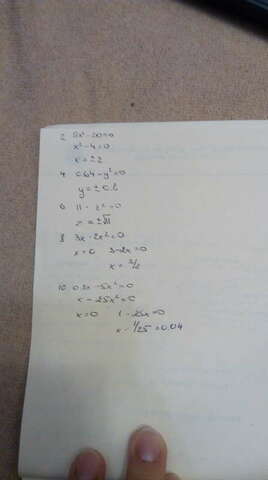 2 5x² - 20 = 0
x² - 4 = 0
x = ± 2
4. 0.64 - y² = 0
y = ± 0.8
6 11 - z² = 0
z = ±√11
8 3x - 2x² = 0
x = 0 3 - 2x = 0
x = 3/2
10. 0.2x - 5x² = 0
x - 25x² = 0
x = 0 1 - 25x = 0
x = 1/25 = 0.04